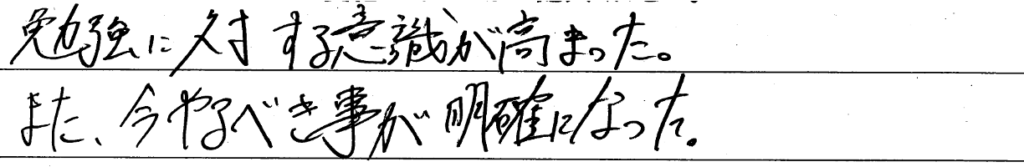 勉強に対する意識が高まった。
また、今やるべき事が明確になった。